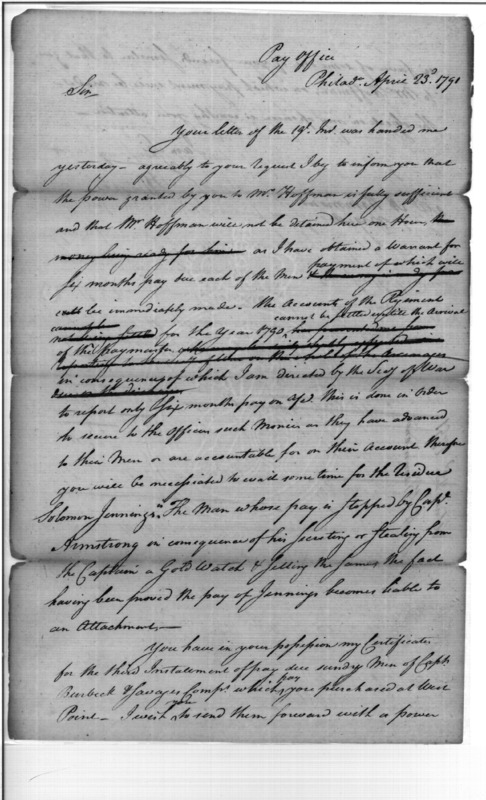 Pay Office
Philada. April 23d. 1791
Sir
Your letter of the 19t. Inst. was handed me
yesterday – agreeably to your request I beg to inform you that
the power granted by you to Mr. Hoffman is fully sufficient
and that Mr. Hoffman will not be detained here one Hour, the
money being ready for him as I have obtained a Warrant for
Six months pay due each of the Men payment of which will
be immediately made. the Account of the Regiment
for the Year 1790, cannot be settled untill the Arrival
of the paymaster
in consequence of which I am directed by the Secy of War
to report only Six months pay on accot. this is done in order
to secure to the Officers such Monies as they have advanced
to their Men or are accountable for on their Account therefore
you will be necessitated to wait some time for the residue
Solomon Jennings. The Man whose pay is stopped by Capt.
Armstrong in consequence of his Secreting or Stealing from
the Captain a Gold Watch & Selling the same the fact
having been proved the pay of Jennings becomes liable to
an Attachment. —
You have in your possession my Certificates
for the third Instalment of pay due sundry Men of Capts.
Burbeck & Savages Comps. which pay you purchased at West
Point – I wish you to send them forward with a power